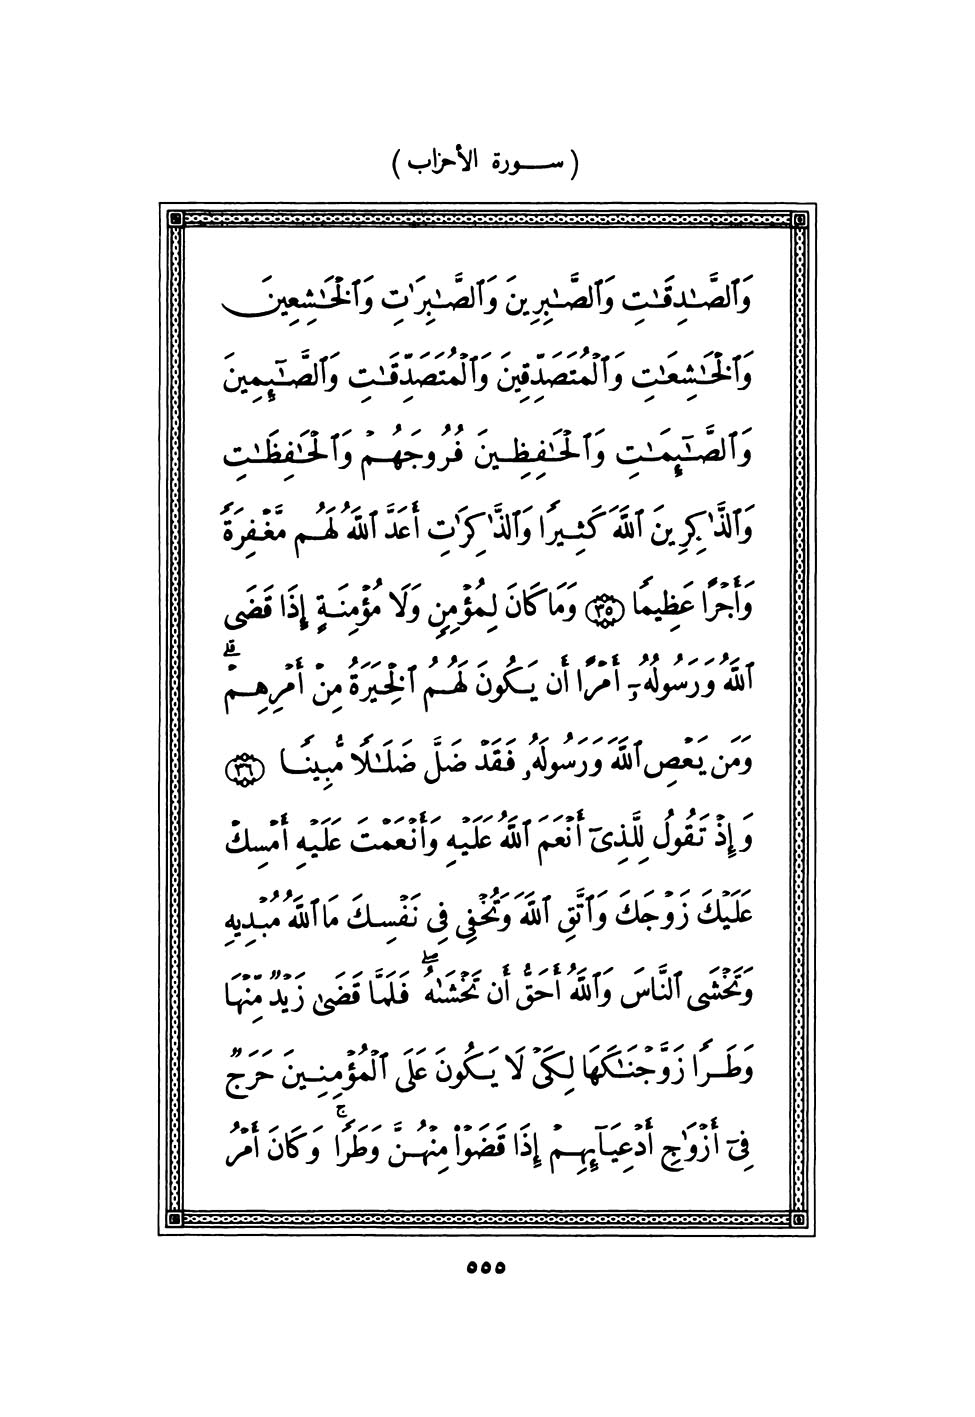 ( ســورة الأحزاب )
وَٱلصَّـٰدِقَـٰتِ وَٱلصَّـٰبِرِينَ وَٱلصَّـٰبِرَٰتِ وَٱلْخَـٰشِعِينَ
وَٱلْخَـٰشِعَـٰتِ وَٱلْمُتَصَدِّقِينَ وَٱلْمُتَصَدِّقَـٰتِ وَٱلصَّـٰٓئِمِينَ
وَٱلصَّـٰٓئِمَـٰتِ وَٱلْحَـٰفِظِـينَ فُرُوجَهُـمْ وَٱلْحَـٰفِظَـٰتِ
وَٱلذَّٰكِرِينَ ٱللَّهَ كَثِـيرًا وَٱلذَّٰكِرَٰتِ أَعَدَّ ٱللَّهُ لَهُـم مَّغْفِرَةً
وَأَجْرًا عَظِيمًا ﴿٣٥﴾ وَمَا كَانَ لِمُؤْمِنٍ وَلَا مُؤْمِنَـةٍ إِذَا قَضَى
ٱللَّهُ وَرَسُولُهُۥٓ أَمْرًا أَن يَـكُونَ لَهُـمُ ٱلْخِيَرَةُ مِنْ أَمْرِهِـمْ ۗ
وَمَن يَعْصِ ٱللَّهَ وَرَسُولَهُۥ فَـقَدْ ضَلَّ ضَلَـٰلًا مُّبِينًـا ﴿٣٦﴾
وَإِذْ تَقُولُ لِلَّذِىٓ أَنْعَمَ ٱللَّهُ عَلَيْهِ وَأَنْعَمْتَ عَلَيْهِ أَمْسِكْ
عَلَيْكَ زَوْجَكَ وَٱتَّقِ ٱللَّهَ وَتُخْفِى فِى نَفْسِـكَ مَا ٱللَّهُ مُبْـدِيهِ
وَتَخْشَى ٱلنَّاسَ وَٱللَّهُ أَحَقُّ أَن تَخْشَىٰهُ ۖ فَلَمَّا قَضَىٰ زَيْدٌ مِّنْهَا
وَطَـرًا زَوَّجْنَـٰكَهَا لِكَىْ لَا يَـكُونَ عَلَى ٱلْمُؤْمِنِـينَ حَرَجٌ
فِىٓ أَزْوَٰجِ أَدْعِيَآئِهِـمْ إِذَا قَضَوْا۟ مِنْهُـنَّ وَطَرًا ۚ وَكَانَ أَمْرُ
٥٥٥